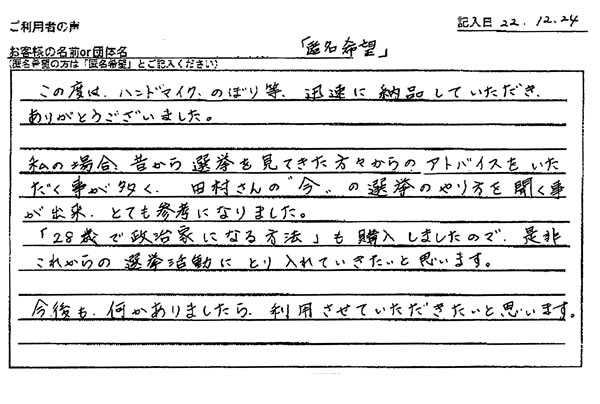 ご利用者の声
記入日 22.12.24
お客様の名前or団体名 「匿名希望」
(匿名希望の方は「匿名希望」とご記入ください)
この度は、ハンドマイク、のぼり等、迅速に納品していただき、
ありがとうございました。
私の場合、昔から選挙を見てきた方々からのアドバイスをいた
だく事が多く、田村さんの"今"の選挙のやり方を聞く事
が出来、とても参考になりました。
「28歳で政治家になる方法」も購入しましたので、是非
これからの選挙活動にとり入れていきたいと思います。
今後も、何かありましたら、利用させていただきたいと思います。